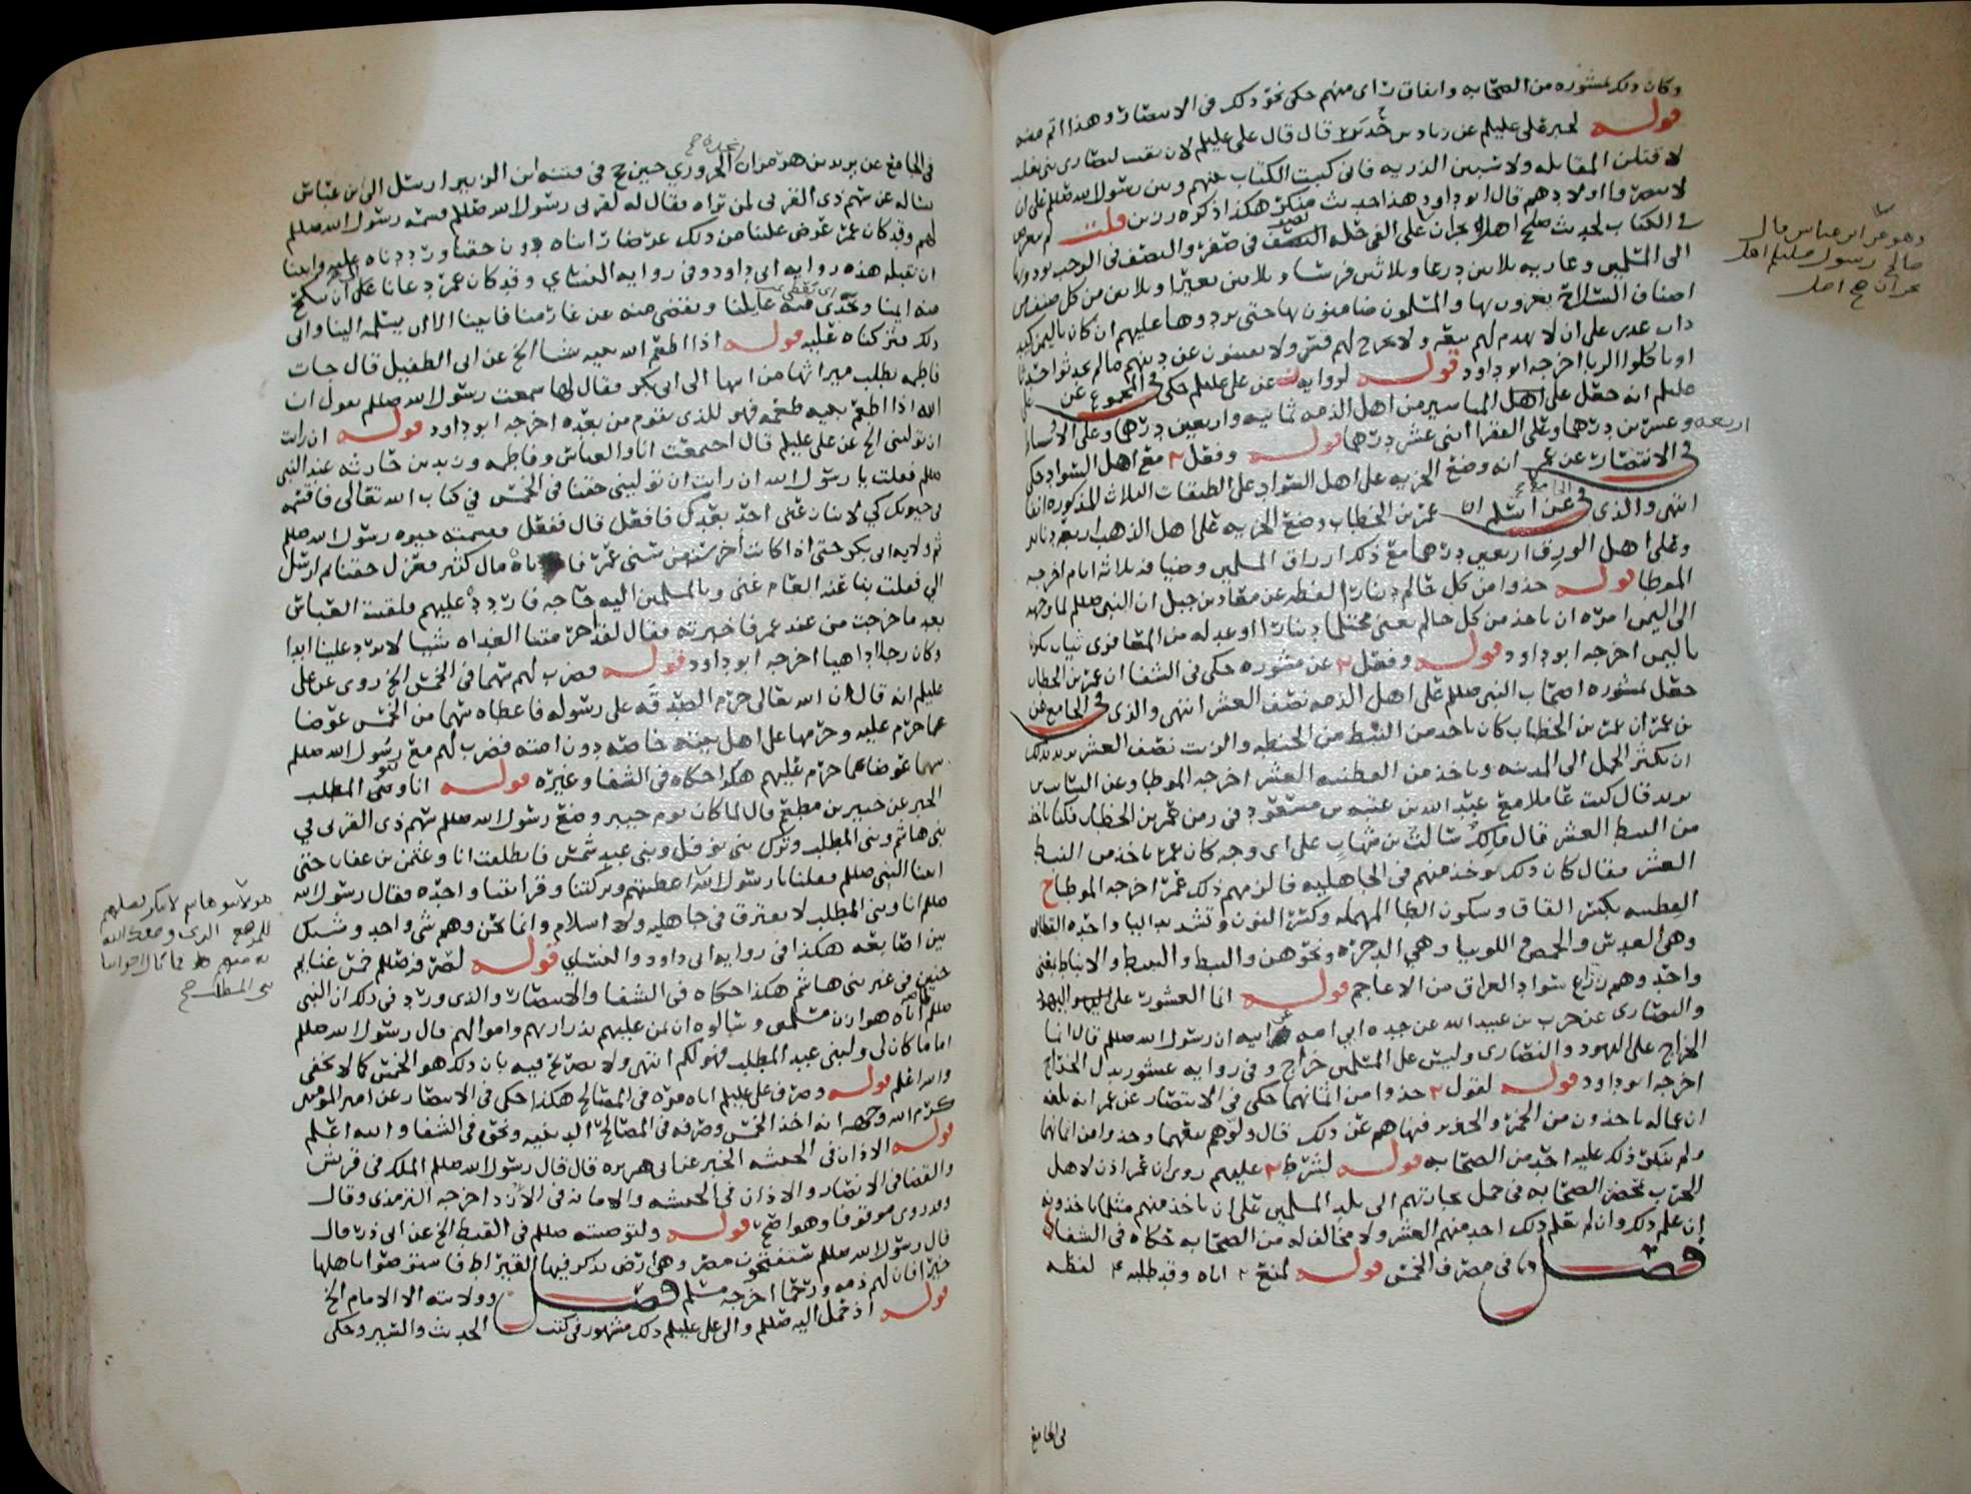 وكان ذلك بمشوره من الصحابه واتفاق راى منهم حكى نحو ذلك فى الانتصار وهذا اتم منه
قوله لخبر على عليلم عن زياد بن حدير قال قال على عليلم لان بقيت لنصارى بنى تغلب
لاقتلن المقاتله ولاسبين الذريه فانى كتبت الكتاب بينهم وبين رسول الله صللم على ان
لا ينصروا اولادهم قال ابو داود هذا حديث منكر هكذا ذكره رزين قلت
فى الكتاب لحديث صلح اهل نجران على الفى حله النصف فى صفر والنصف فى الرجب يودونها
الى المسلمين وعاريه ثلاثين درعا وثلاثين فرسا وثلاثين بعيرا وثلاثين من كل صنف من
اصناف السلاح يغزون بها والمسلمون ضامنون لها حتى يردوها عليهم ان كان باليمن كيد
ذات غدر على ان لا يهدم لهم بيعه ولا يخرج لهم قس ولا يفتنون عن دينهم مالم يحدثوا حدثا
او ياكلوا الربا اخرجه ابو داود قوله لروايه عن على عليلم حكى فى المجموع عن على
عليلم انه جعل على اهل المياسير من اهل الذمه ثمانيه واربعين درهما وعلى الاوساط
اربعه وعشرين درهما وعلى الفقرا اثنى عشر درهما قوله وفعل مع اهل السواد حكى
فى الانتصار عن عمر انه وضع الجزيه على اهل السواد على الطبقات الثلاث المذكوره انفا
انتهى والذى فى الجامع عن اسلم ان عمر بن الخطاب وضع الجزيه على اهل الذهب اربعه دنانير
وعلى اهل الورق اربعين درهما مع ذلك ارزاق المسلمين وضيافه ثلاثه ايام اخرجه
الموطا قوله خذوا من كل حالم دينارا لفظه عن معاذ بن جبل ان النبى صللم لما وجهه
الى اليمن امره ان ياخذ من كل حالم يعنى محتلما دينارا او عدله من المعافرى ثياب تكون
باليمن اخرجه ابو داود قوله وفعل عن مشوره حكى فى الشفا ان عمر بن الخطاب
جعل بمشوره اصحاب النبى صللم على اهل الذمه نصف العشر انتهى والذى فى الجامع عن
بن عمر ان عمر بن الخطاب كان ياخذ من النبط من الحنطه والزيت نصف العشر يريد بذلك
ان يكثر الحمل الى المدينه وياخذ من القطنيه العشر اخرجه الموطا وعن السايب بن
يزيد قال كنت غلاما مع عبد الله بن عتبه بن مسعود فى زمن عمر بن الخطاب فكنا ناخذ
من النبط العشر قال مالك سالت بن شهاب على اى وجه كان عمر ياخذ من النبط
العشر فقال كان ذلك يوخذ منهم فى الجاهليه فالزمهم ذلك عمر اخرجه الموطا ح
القطنيه بكسر القاف وسكون الطا المهمله وكسر النون وتشديد اليا واحده القطانى
وهى العدس والحمص واللوبيا وهى الدجره ونحوهن والنبط والنبيط والانباط بمعنى
واحد وهم زراع سواد العراق من الاعاجم قوله انما العشور على اليهود
والنصارى عن حرب بن عبيد الله عن جده ابى امه عن ابيه ان رسول الله صللم قال انما
الخراج على اليهود والنصارى وليس على المسلمين خراج وفى روايه عشور بدل الخراج
اخرجه ابو داود قوله لقول خذوا من اثمانهما حكى فى الانتصار عن عمر انه بلغه
ان عماله ياخذون من الخمر والخنزير فنهاهم عن ذلك قال ولوهم بيعهما وخذوا من اثمانهما
ولم ينكر ذلك عليه احد من الصحابه قوله لشرط عليهم روى ان عمر اذن لاهل
الحرب بمحضر الصحابه فى حمل تجارتهم الى بلد المسلمين على ان ياخذ منهم مثل ما ياخذونه
ان علم ذلك وان لم يعلم ذلك اخذ منهم العشر ولا مخالف له من الصحابه حكاه فى الشفا
فصل فى مصرف الخمس قوله لمنع اياه وقد طلبه لفظه
فى الجامع
وهو عن ابن عباس قال
صالح رسول صللم اهل
نجران صح اصل
فى الجامع عن يزيد بن هرمز ان نجده الحرورى حين حج فى فتنه ابن الزبير ارسل الى بن عباس
يساله عن سهم ذى القربى لمن تراه فقال له لقربى رسول الله صللم قسمه رسول الله صللم
لهم وقد كان عمر عرض علينا من ذلك عرضا راياه دون حقنا ورددناه عليه وابينا
ان نقبله هذه روايه ابى داود وفى روايه النسائى وقد كان عمر دعانا على ان ينكح
منه ايمنا ويحدى منه عايلنا ويقضى منه عن غارمنا فابينا الا ان يسلمه الينا وابى
ذلك فتركناه عليه قوله اذا اطعم الله نبيه شيا الخ عن ابى الطفيل قال جات
فاطمه تطلب ميراثها من ابيها الى ابى بكر فقال لها سمعت رسول الله صللم يقول ان
الله اذا اطعم نبيه طعمه فهو للذى يقوم من بعده اخرجه ابو داود قوله ان رايت
ان تولينى الخ عن على عليلم قال اجتمعت انا والعباس وفاطمه وزيد بن حارثه عند النبى
صللم فقلت يا رسول الله ان رايت ان تولينى حقنا فى الخمس فى كتاب الله تعالى فاقسمه
فى حيوتك كى لا ينازعنى احد بعدك فافعل قال ففعل فقسمته حيوه رسول الله صللم
ثم ولايه ابى بكر حتى اذا كانت اخر سنه من سنى عمر فاتاه مال كثير فعزل حقنا ثم ارسل
الى فقلت بنا عنه العام غنى وبالمسلمين اليه حاجه فاردده عليهم فلقيت العباس
بعد ما خرجت من عند عمر فاخبرته فقال لقد احرمتنا الغداه شيا لا يرد علينا ابدا
وكان رجلا داهيا اخرجه ابو داود قوله فضرب لهم سهما فى الخمس الخ روى عن على
عليلم انه قال ان الله تعالى حرم الصدقه على رسوله فاعطاه سهما من الخمس عوضا
عما حرم عليه وحرمها على اهل بيته خاصه دون امته فضرب لهم مع رسول الله صللم
سهما عوضا عما حرم عليهم هكذا حكاه فى الشفا وغيره قوله انا وبنو المطلب
الخبر عن جبير بن مطعم قال لما كان يوم خيبر وضع رسول الله صللم سهم ذى القربى فى
بنى هاشم وبنى المطلب وترك بنى نوفل وبنى عبد شمس فانطلقت انا وعثمن بن عفان حتى
اتينا النبى صللم فقلنا يا رسول الله اعطيتهم وتركتنا وقرابتنا واحده فقال رسول الله
صللم انا وبنى المطلب لا نفترق فى جاهليه ولا اسلام وانما نحن وهم شى واحد وشبك
بين اصابعه هكذا فى روايه ابى داود والنسائى قوله لصرفه صللم خمس غنايم
حنين فى غير بنى هاشم هكذا حكاه فى الشفا والانتصار والذى ورد فى ذلك ان النبى
صللم اتاه هوازن مسلمين وسالوه ان يمن عليهم بذراريهم واموالهم قال رسول الله صللم
اما ما كان لى ولبنى عبد المطلب فهو لكم انتهى ولا تصريح فيه بان ذلك هو الخمس كما لا يخفى
والله اعلم قوله وصرف على عليلم اياه مره فى المصالح هكذا حكى فى الانتصار عن امير المومنين
كرم الله وجهه انه اخذ الخمس وصرفه فى المصالح الدينيه ونحوه فى الشفا والله اعلم
قوله الاذان فى الحبشه الخبر عن ابى هريره قال قال رسول الله صللم الملك فى قريش
والقضا فى الانصار والاذان فى الحبشه والامانه فى الازد اخرجه الترمذى وقال
وقد روى موقوفا وهو اصح قوله ولتوصيته صللم فى القبط الخ عن ابى ذر قال
قال رسول الله صللم ستفتحون مصر وهى ارض يذكر فيها القيراط فاستوصوا باهلها
خيرا فان لهم ذمه ورحما اخرجه مسلم فصل وولايته الا الامام الخ
قوله اذ حمل اليه صللم والى على عليلم ذلك مشهور فى كتب الحديث والسير وحكى
هولا بنو هاشم لا ننكر فضلهم
للموضع الذى وضعك الله
به منهم فما بال اخواننا
بنى المطلب صح